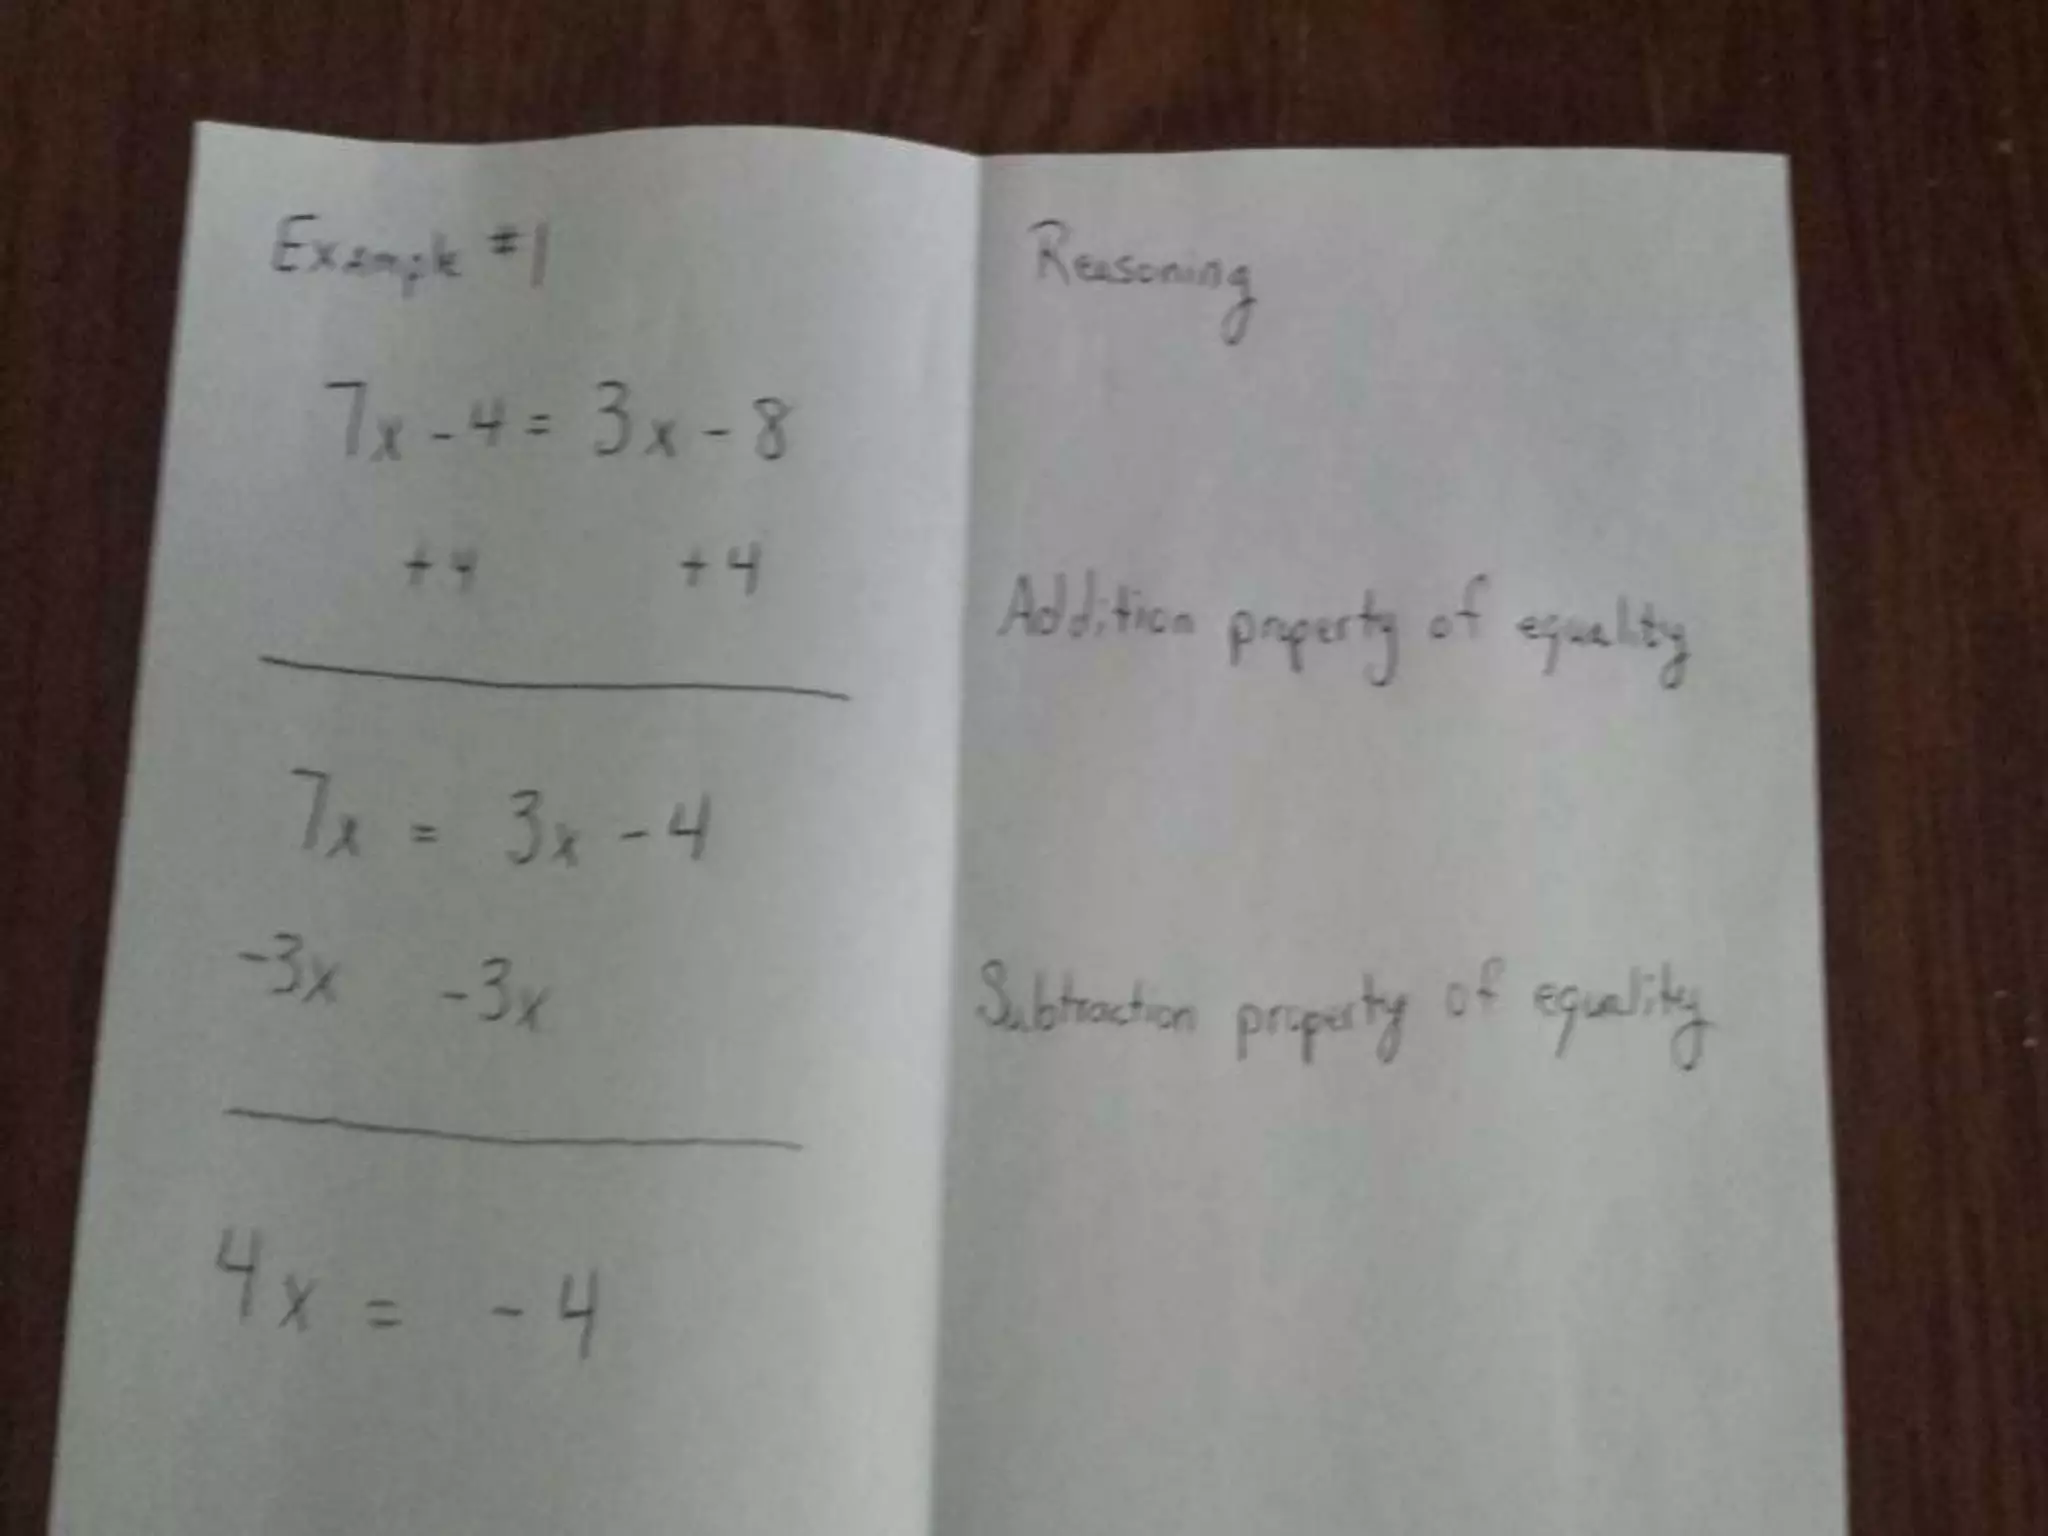 Example #1
7x - 4 = 3x - 8
+4 +4
7x = 3x - 4
-3x -3x
4x = -4
Reasoning
Addition property of equality
Subtraction property of equality